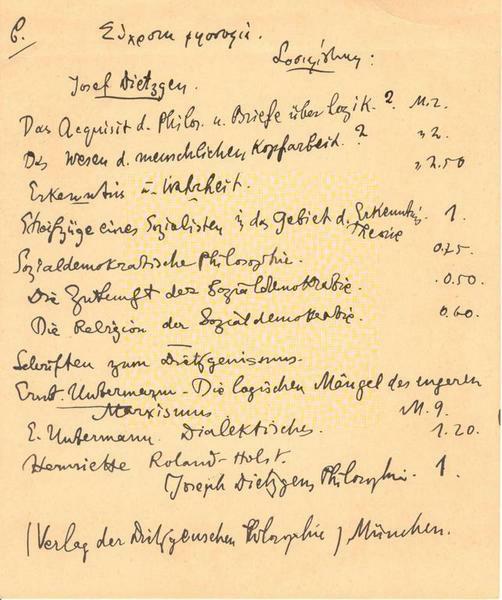 6.
Σύγχρονη
Σοσιαλισμός:
Josef Dietzgen.
Das Acquisit d. Philos. u. Briefe über Logik. ? M. 2.
Das Wesen d. menschlichen Kopfarbeit. ? " 2.
Erkenntnis u. Wahrheit. " 2.50
Streifzüge eines Sozialisten in das Gebiet d. Erkenntnis 1.
Theorie
Sozialdemokratische Philosophie. 0.75.
Die Zukunft der Sozialdemokratie. 0.50.
Die Religion der Sozialdemokratie. 0.60.
Schriften zum Dietzgenismus.
Ernst. Untermann - Die logischen Mängel des engeren
Marxismus M. 9.
E. Untermann. Dialektisches. 1.20.
Henriette Roland-Holst.
Joseph Dietzgens Philosophie. 1.
(Verlag der Dietzgenschen Philosophie) München.